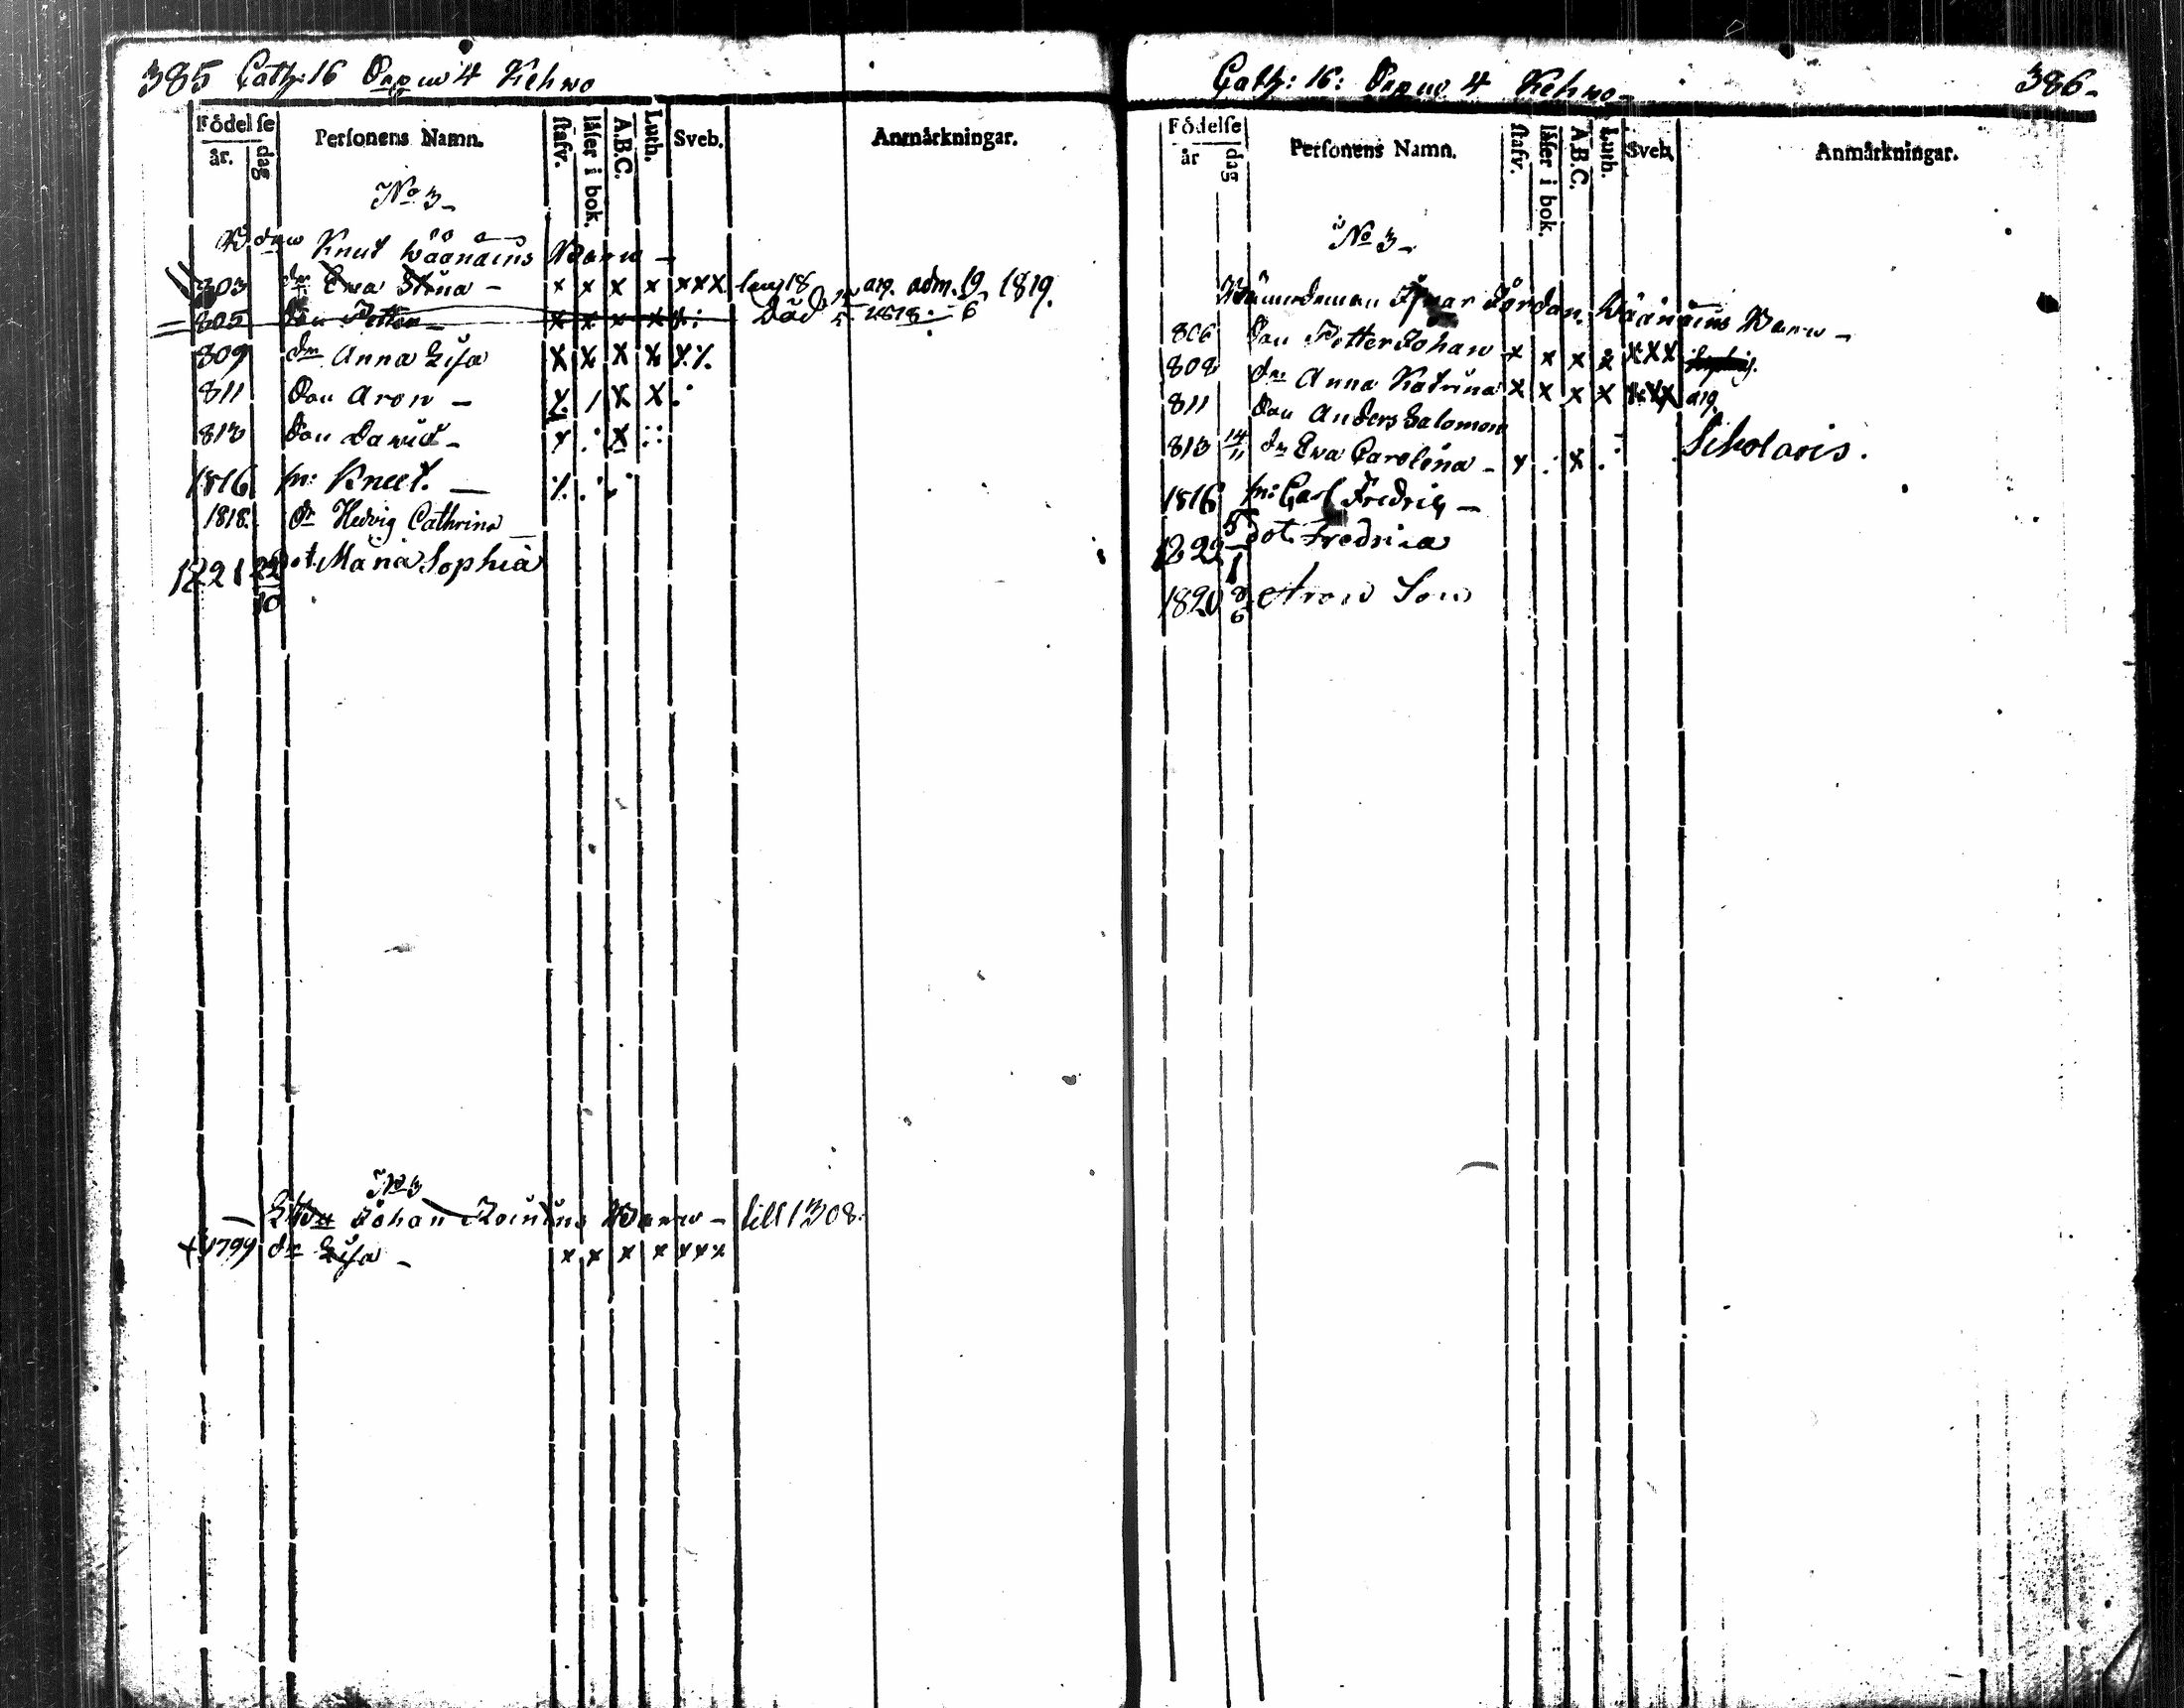 385 Cath: 16 Orpw 4 Kehwo
Födelse
år. dag
Personens Namn.
stafv.
läser i bok.
A.B.C.
Luth.
Sveb.
Anmärkningar.
No 3 -
Knut Wäänäins Barn -
803 dr Ewa Stina - x x x x xxx adm. 19 1819.
805 Son Petter - x x x x Död 1818. 6
809 dr Anna Lisa x x x x
811 Son Aron - x x
813 Son David -
1816 sn: Knut. -
1818. dr Hedvig Cathrina -
1821 22/10 dot. Maria Sophia
No 3
Johan Roinins Barn - till 1308.
1799 dr Lisa - x x x x xxx
Cath: 16: Orpw 4 Kehwo - 386 -
Födelse
år dag
Personens Namn.
stafv.
läser i bok.
A.B.C.
Luth.
Sveb.
Anmärkningar.
No 3 -
Nämndeman Ifvar Jördan. Wäänäins Barn -
806 Son Petter Johan x x x x xxx
808 dr Anna Katrina x x x x xxx
811 Son Anders Salomon
813 14/11 dr Ewa Carolina - Scholaris.
1816 sn: Carl Fredric -
1822 5/1 dot. Fredrica
1820 Aron Son